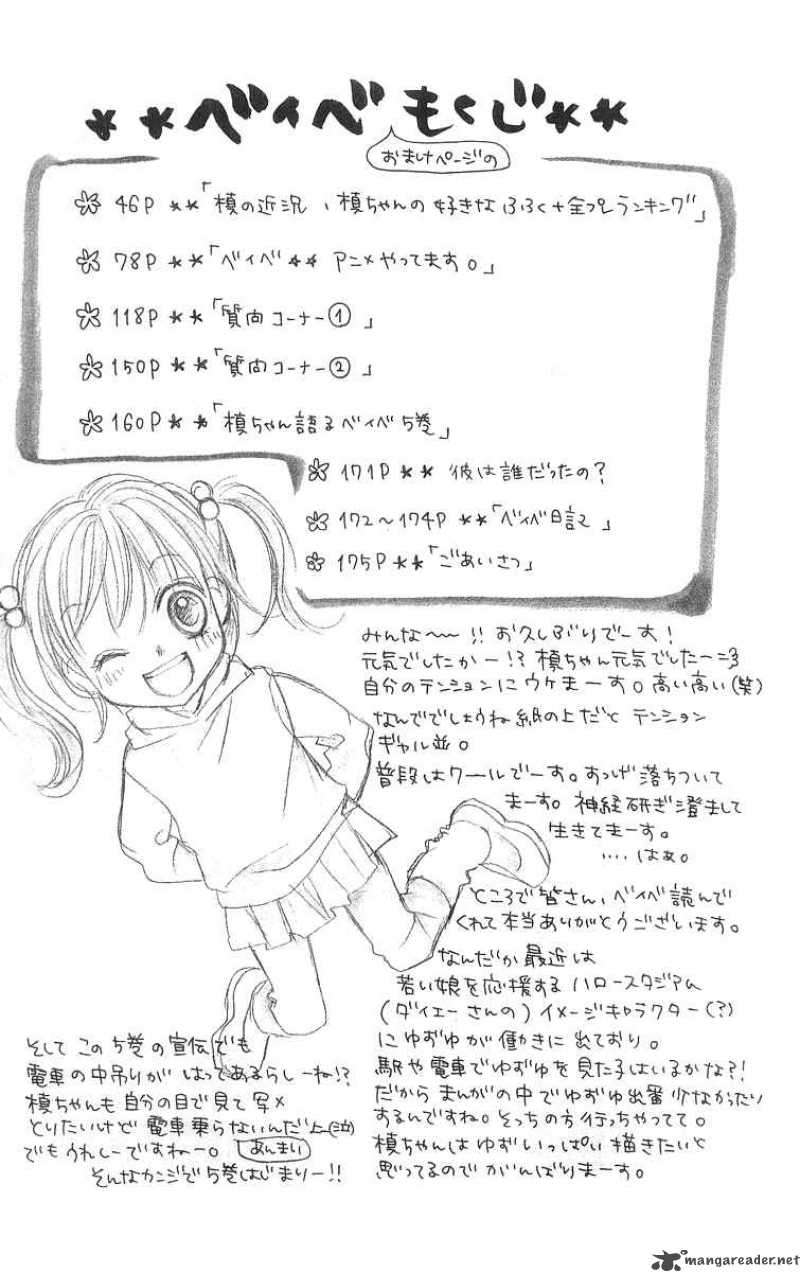 **ベイベもくじ**
おまけページの
46P **「槙の近況、槙ちゃんの好きなふろく+全プレランキング」
78P **「ベイベ** アニメやってます。」
118P **「質問コーナー①」
150P **「質問コーナー②」
160P **「槙ちゃん語るベイベ5巻」
171P ** 彼は誰だったの?
172〜174P **「ベイベ日記」
175P **「ごあいさつ」
みんな〜〜!! お久しぶりでーす!
元気でしたかー!? 槙ちゃん元気でした〜
自分のテンションにウケまーす。高い高い(笑)
なんででしょうね紙の上だと テンション
ギャル並。
普段はクールでーす。すっげ落ちついて
まーす。神経研ぎ澄まして
生きてまーす。
....はぁ。
ところで皆さん、ベイベ読んで
くれて本当ありがとうございます。
なんだか最近は
若い娘を応援する ハロースタジアム
(ダイエーさんの)イメージキャラクター(?)
にゆずゆが働きに出ており。
駅や電車でゆずゆを見た子はいるかな?!
だから まんがの中でゆずゆ出番少なかったり
するんですね。そっちの方行っちゃってて。
槙ちゃんはゆずいっぱい描きたいと
思ってるのでがんばりまーす。
そして この5巻の宣伝でも
電車の中吊りが はってあるらしーね!?
槙ちゃんも自分の目で見て写メ
とりたいけど電車乗らないんだよ(泣)
あんまり
でもうれしーですねー。
そんなカンジで5巻はじまりー!!
mangareader.net